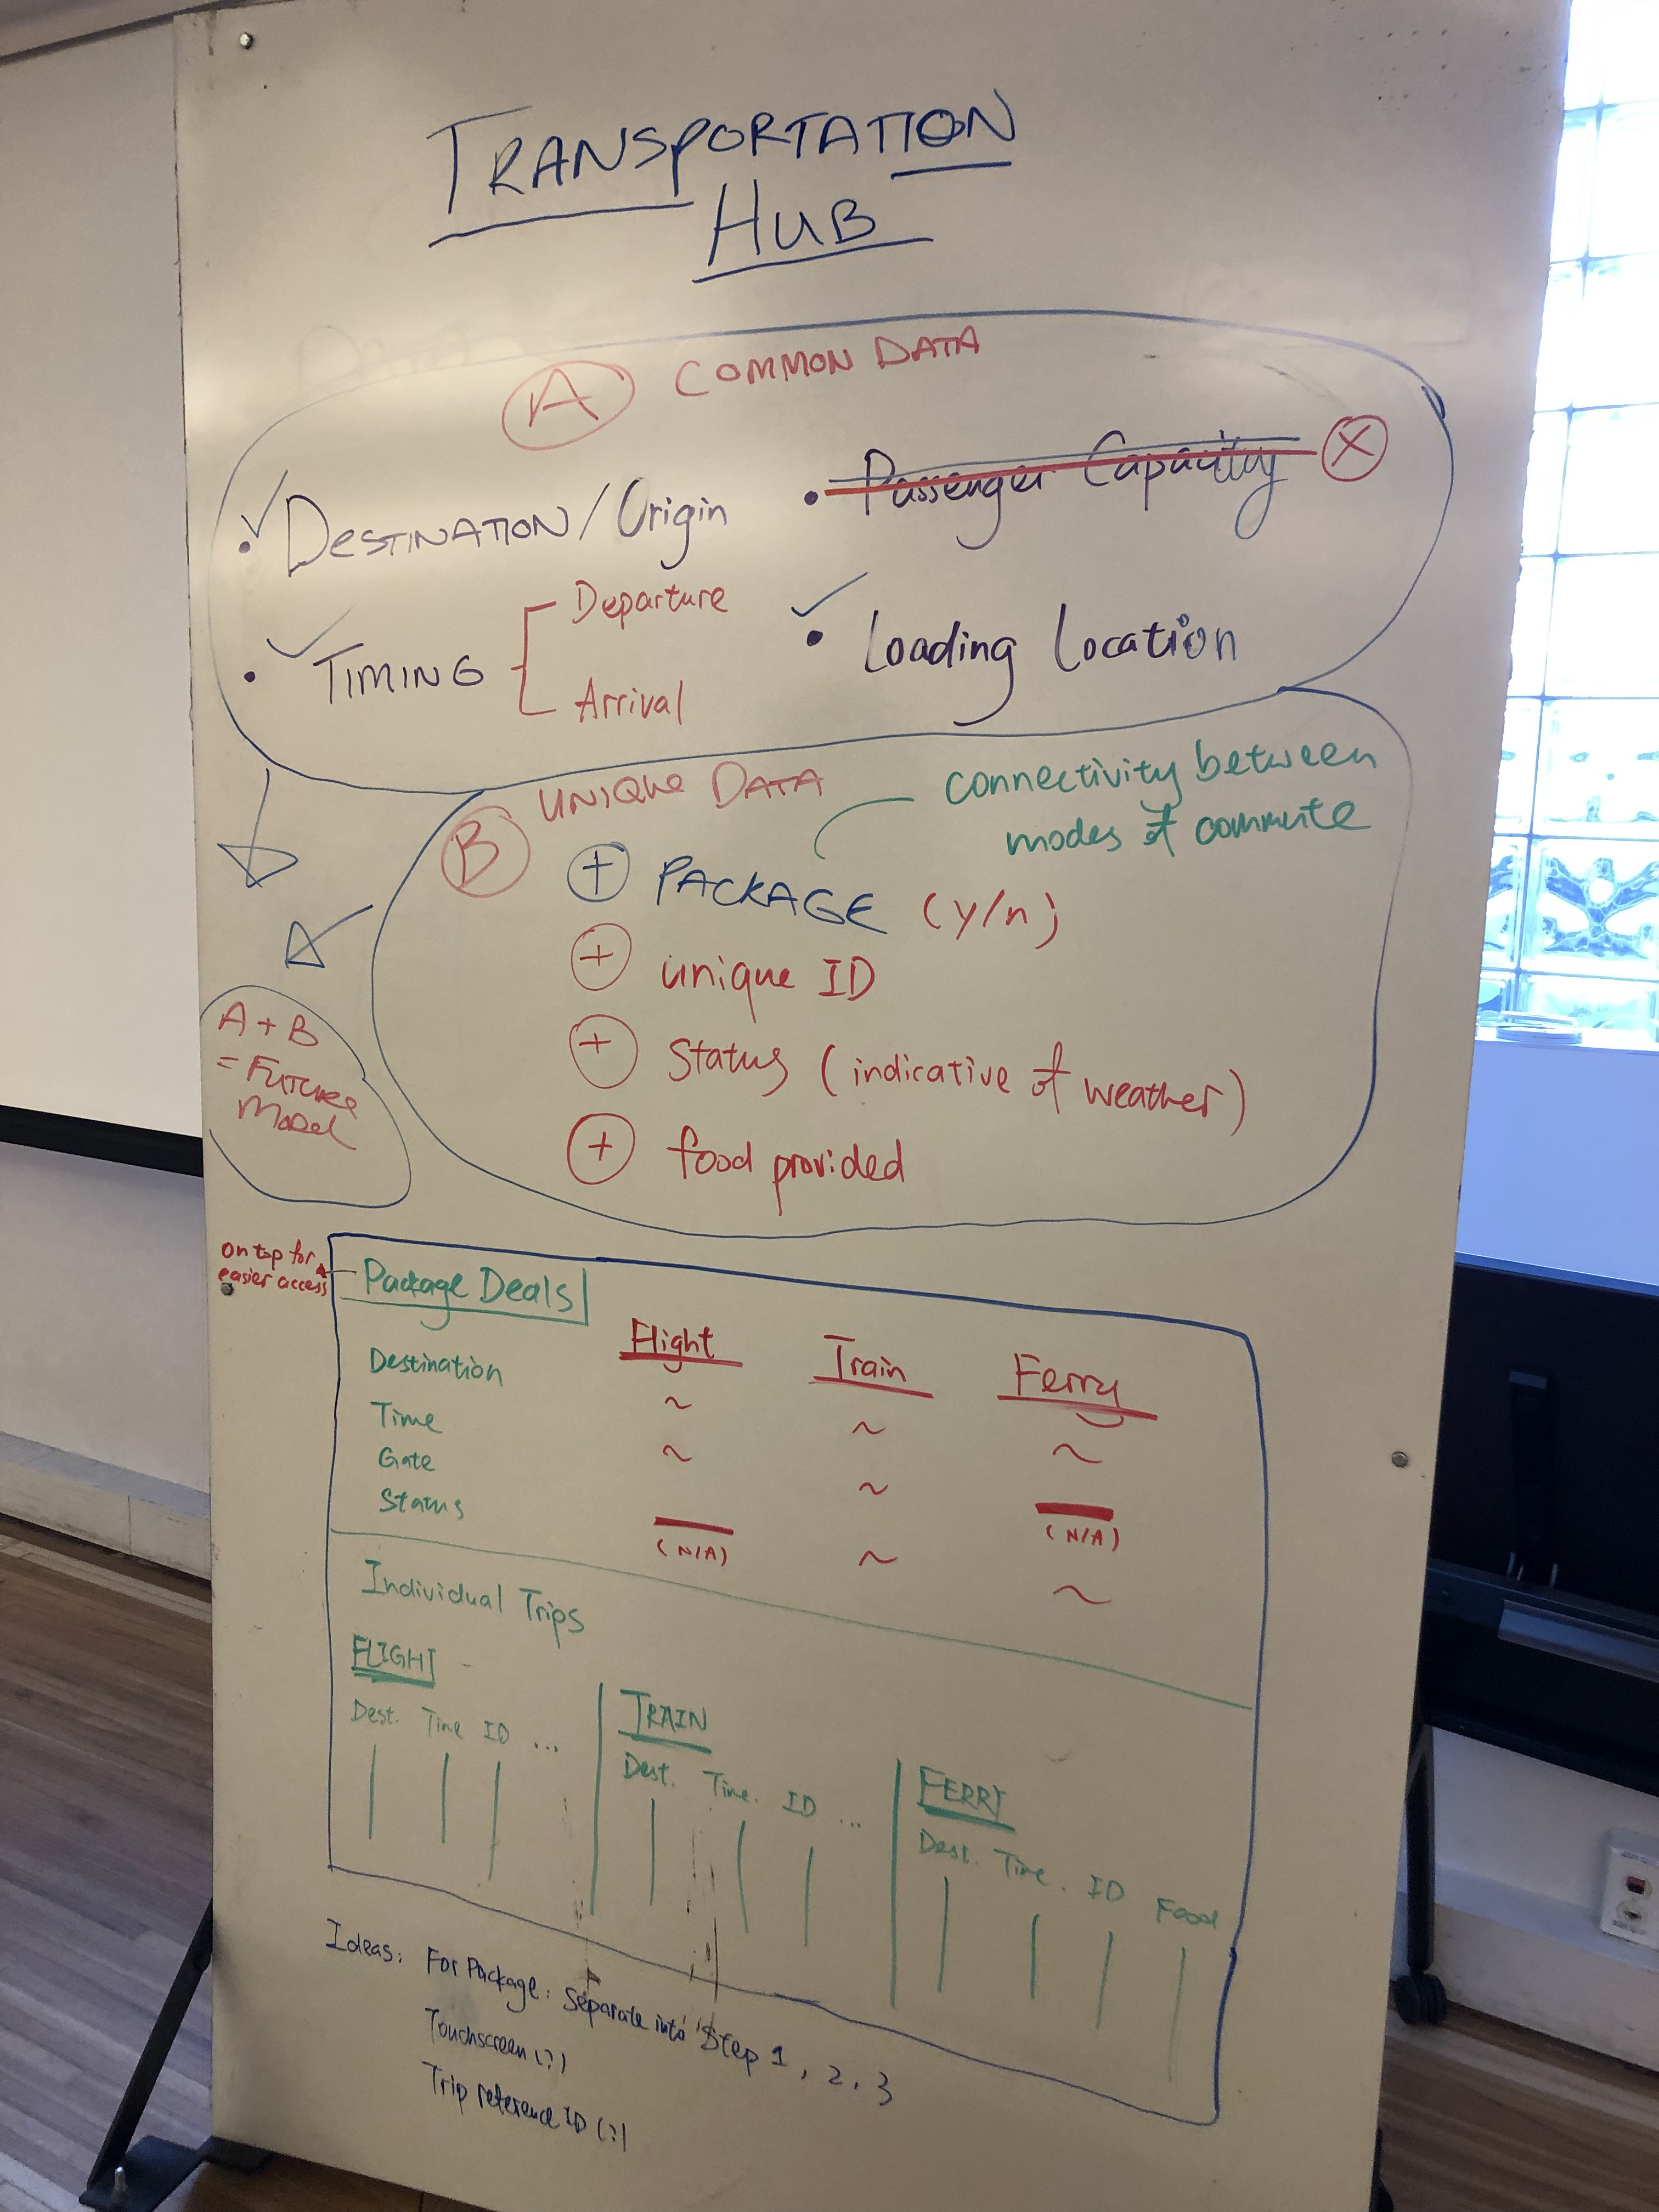 TRANSPORTATION
HUB
A COMMON DATA
• DESTINATION/Origin
• Passenger Capacity X
• TIMING
Departure
Arrival
• Loading Location
B UNIQUE DATA
connectivity between
modes of commute
+ PACKAGE (y/n)
+ unique ID
+ Status (indicative of weather)
+ food provided
A + B
= FUTURE
MODEL
on top for
easier access
Package Deals
Flight Train Ferry
Destination ~ ~ ~
Time ~ ~ (N/A)
Gate (N/A) ~ ~
Status
Individual Trips
FLIGHT
Dest. Time ID ...
TRAIN
Dest. Time. ID ...
FERRY
Dest. Time. ID Food
Ideas: For Package: Separate into Step 1, 2, 3
Touchscreen (?)
Trip reference ID (?)